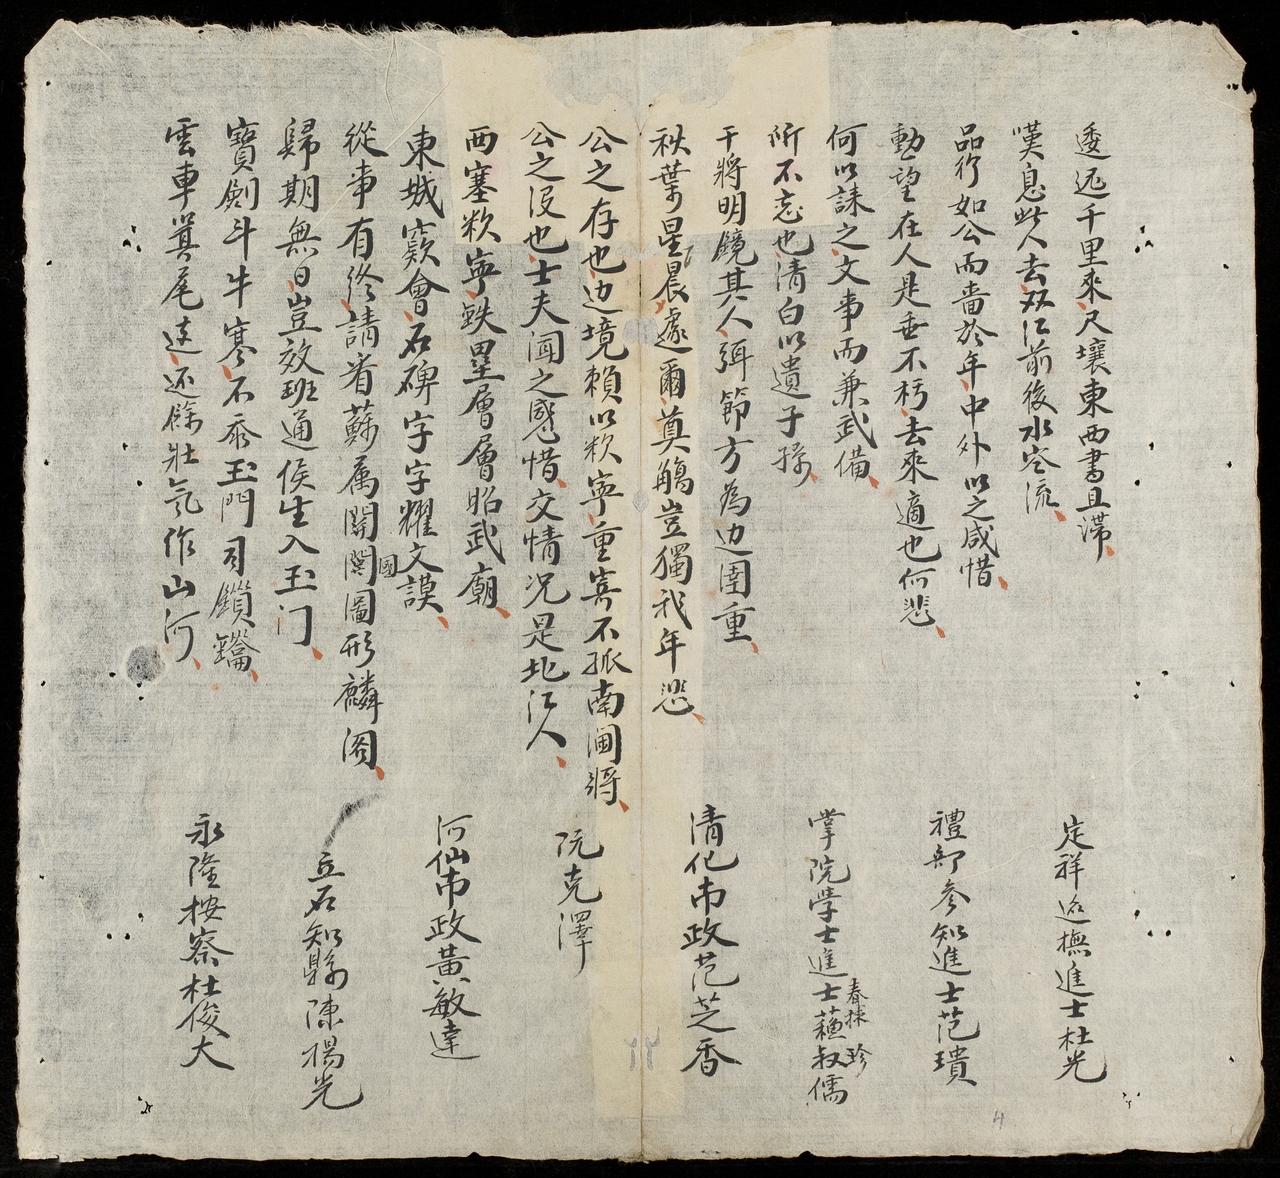 逶迤千里來尺壤東西書且滞
嘆息此人去双江前後水空流
定祥巡撫進士杜光
品行如公而嗇於年中外以之咸惜
勳望在人是垂不朽去來適也何悲
禮部參知進士范璝
何以誄之文事而兼武備
所不忘也清白以遺子孫
掌院学士進士蘓叔儒
春捸 珍
干將明鏡其人弭節方為边圉重
秋葉星晨遽爾奠觴豈獨我年悲
清化布政范芝香
公之存也边境賴以敉寧重寄不孤南圖將
公之没也士夫闻之感惜交情况是北江人
阮克澤
西塞敉寧鉄壘層層昭武廟
東城窾會石碑字字耀文謨
河仙布政黃敏達
從事有終請看蘇属國圖形麟阁
國
歸期無日豈效班通侯生入玉门
丘石知縣陳楊光
寳劍斗牛寒不忝玉門司鎖鑰
雲車箕尾迲还餘壮氣作山河
永隆按察杜俊大
4